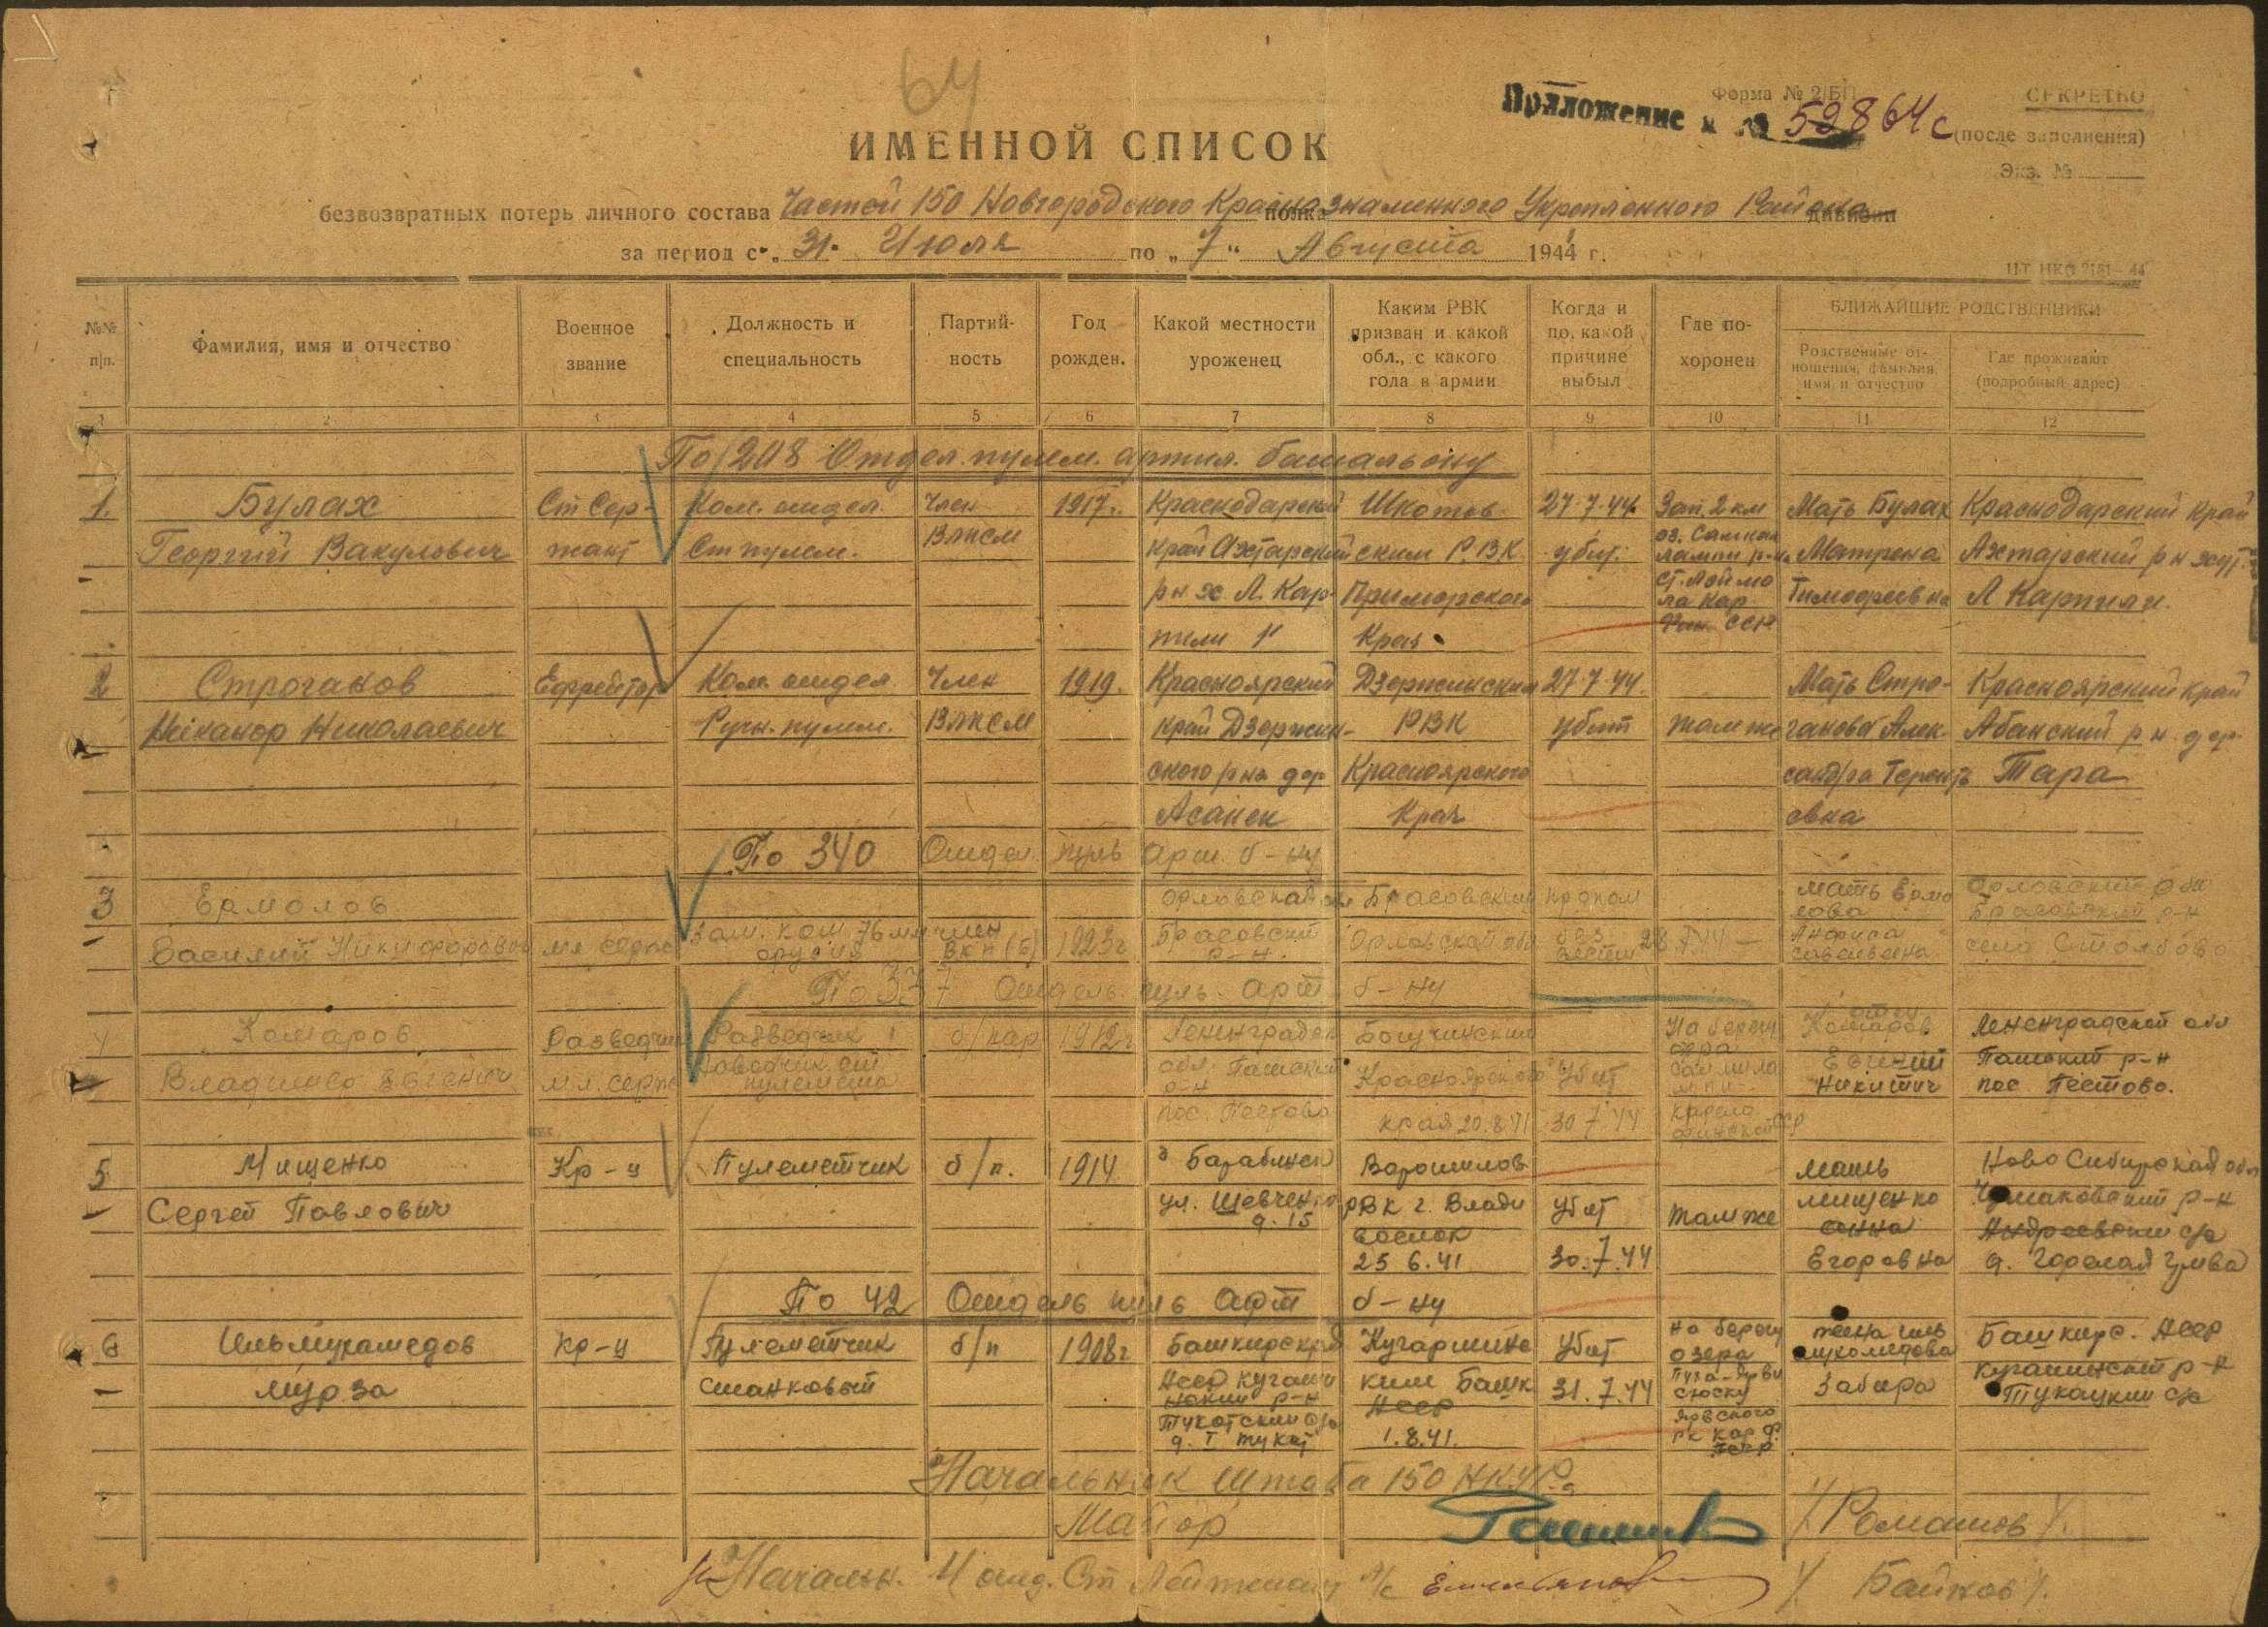 64
Приложение к № 52864с
Форма № 2/БП
СЕКРЕТНО
(после заполнения)
Экз. №
ИМЕННОЙ СПИСОК
безвозвратных потерь личного состава Частей 150 Новгородского Краснознаменного Укрепленного Района
за период с „31“ Июля по „7“ Августа 1944 г.
№№ п/п.
Фамилия, имя и отчество
Военное звание
Должность и специальность
Партий-ность
Год рожден.
Какой местности уроженец
Каким РВК призван и какой обл., с какого гола в армии
Когда и по какой причине выбыл
Где по-хоронен
БЛИЖАЙШИЕ РОДСТВЕННИКИ
Родственные от-ношения, фамилия, имя и отчество
Где проживают (подробный адрес)
1 2 3 4 5 6 7 8 9 10 11 12
По 208 Отдел. пулем. артил. батальону
1. Булах Ст Сер- Ком. отдел. Член 1917г. Краснодарский Шкотов- 27.7.44 Зап. 2 км Мать Булах Краснодарский край
Георгий Вакулович жант Ст пулем. ВЛКСМ край Ахтарский ским РВК убит. оз. Матрена Ахтарский р-н хут.
р-н х Л. Кар- Приморского Тимофеевна Л Карпили.
пили Края ССР
2 Строганов Ефрейтор Ком. отдел. Член 1919. Красноярский Дзержинским 27.7.44. Мать Стро- Красноярский край
Никанор Николаевич Ручн. пулем. ВЛКСМ край Дзержин- РВК убит там же ганова Алек- Абанский р-н дер
ского р-на дер Красноярского сандра Теренть Тара
Асанск Края евна
По 340 Отдел. пуль арт. б-ну
3 Ермолов Орловская обл Брасовским пропал мать Ермо Орловский обл
лова Брасовский р-н
Василий Никифорович мл. серж зам. ком 76 мм член 1923г Брасовский Орловской обл без 28.7.44 Анфиса село Столбово
орудия ВКП(б) р-н. вести Савельевна
По 377 Отдель пуль. арт б-ну
4 Комаров Разведчик Разведчик б/пар 1912г Ленинградск Богучинским На берегу отец Комаров Ленинградской обл
Владимир Евгенич мл. серж Наводчик ст пулемета обл. Пашский р-н Красноярского убит озера Евгений Никитич Пашский р-н пос Пестово.
пос. Пестово края 20.8.41 30.7.44
5 Мищенко Кр-ц Пулеметчик б/п. 1914 г Барабинск Ворошилов мать Ново Сибирская обл
Сергей Павлович ул. Шевченко РВК г. Влади убит там же мищенко р-н
д. 15 восток анна Андреевский с/с
25.6.41 30.7.44 Егоровна д. Горелая Грива
По 42 Отдель пуль арт б-ну
6 Ильмухамедов Кр-ц Пулеметчик б/п 1908г Башкирская Кугарчинс убит на берегу жена иль Башкирс. АССР
мурза станковый АССР ким Башк 31.7.44 озера мухомедова р-н
р-н АССР Забира Тукацкий с/с
1.8.41.
Начальник Штаба 150 НКУР-а
Майор / Романов /.
Начальн. 4 отд. Ст Лейтенант а/с / Байков /.